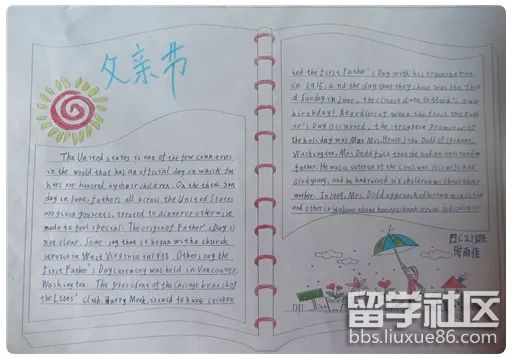 父亲节
The United states is one of the few countries
in the world that has an official day on which fat
hers are honored by their children. On the third Sun
day in June, fathers all across the United States
are given presents, treated to dinner or otherwise
made to feel special. The origin of Father's Day is
not clear. Some say that it began with a church
service in West Virginia in 1908. Others say the
first Father's Day ceremony was held in Vancouver
Washington. The president of the Chicago branch of
the Lions' Club, Harry Meek, is said to have celebra
ted the first Father's Day with his organization
in 1915, and the day that they chose was the thir
d Sunday in June, the closest date to Meek's own
birthday! Regardless of when the first Fath
er's Day occurred, the strongest promoter of
the holiday was Mrs. Bruce John Dodd of Spokane,
Washington. Mrs Dodd felt that she had an outstanding
father. He was a veteran of the Civil War. His wife
died young, and he had raised six children without their
mother. In 1909, Mrs. Dodd approached her own minister
and others in Spokane about having a church service dedicated to
四(2)班
留学社区
bbs.liuxue86.com